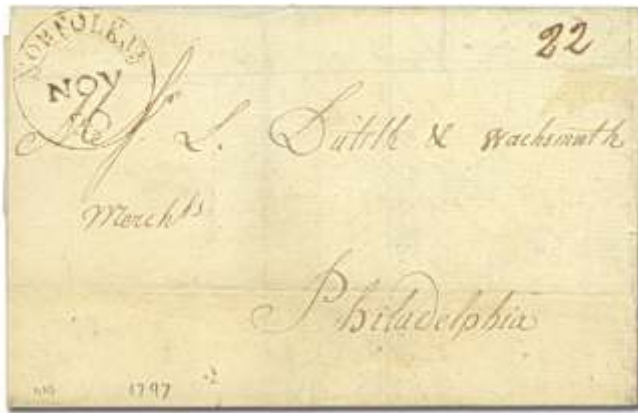 NORFOLK,
NOV
22
L. Dutilh & Wachsmuth
Merchts
Philadelphia
1797